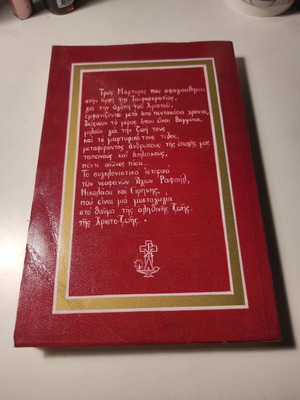 Τρεῖς Μάρτυρες πού σφαγιάσθηκαν
στήν ἀρχή τῆς Τουρκοκρατίας,
γιά τήν ἀγάπη τοῦ Χριστοῦ,
ἐμφανίζονται μετά ἀπό πεντακόσια χρόνια,
δείχνουν τό μέρος ὅπου εἶναι θαμμένοι,
μιλοῦν γιά τήν ζωή τους
καί τό μαρτυρικό τους τέλος,
μεταφέροντας ἀνθρώπους τῆς ἐποχῆς μας
ταπεινούς καί ἁπλοϊκούς,
πέντε αἰῶνες πίσω...
Τό συγκλονιστικό ἱστορικό
τῶν νεοφανῶν Ἁγίων Ραφαήλ,
Νικολάου καί Εἰρήνης,
πού εἶναι μιά μυσταγωγία
στό θαῦμα τῆς ἀληθινῆς ζωῆς,
τῆς Χριστοζωῆς.